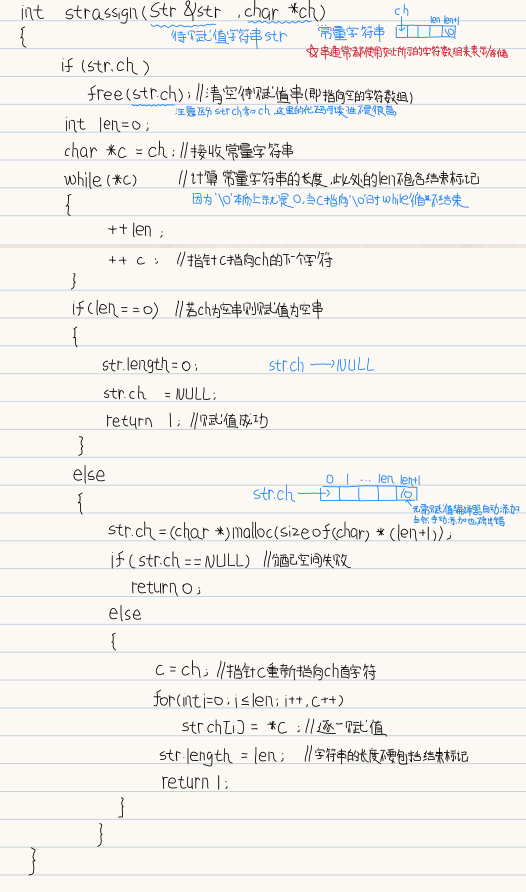 int strassign(Str &str ,char *ch)
{
待赋值字符串str 常量字符串
ch
len len+1
\0
if (str.ch)
free(str.ch); //清空待赋值串(即指向空的字符数组)
注意区分str.ch和ch,这里的代码可读性不是很高
int len=0;
char *c = ch; //接收常量字符串
while (*c) //计算常量字符串的长度,此处的len不包含结束标记
{
因为'\0'本质上就是0,当c指向'\0'时while循环结束
++len ;
++ c ; //指针c指向ch的下个字符
}
if(len==0) //若ch为空串则赋值为空串
{
str.length=0; str.ch → NULL
str.ch = NULL;
return 1; //赋值成功
}
else
{
0 1 ... len len+1
str.ch → \0
无需赋值编译器自动添加
当然手动添加也
str.ch=(char *)malloc(sizeof(char) * (len+1));
if ( str.ch==NULL) //分配空间失败
return 0;
else
{
c = ch; //指针c重新指向ch首字符
for(int i=0; i≤len; i++,c++)
str.ch[i] = *c ; //逐一赋值
str.length = len; //字符串的长度不包括结束标记
return 1;
}
}
}